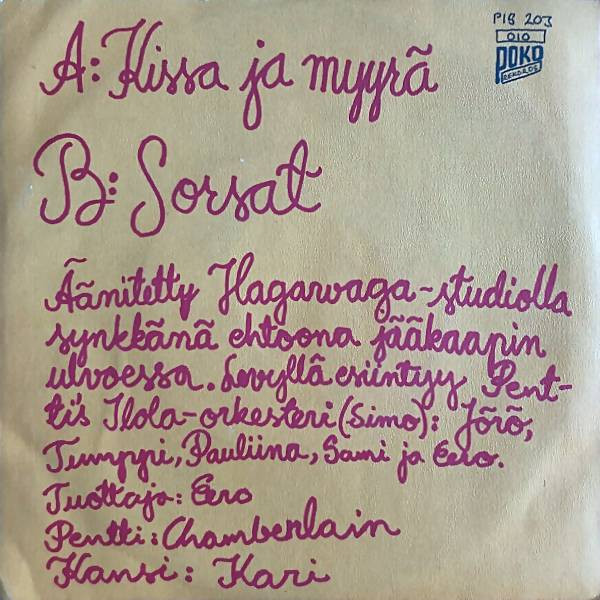 PIB 203
010
POKO
REKORDS
A: Kissa ja myyrä
B: Sorsat
Äänitetty Hagarvaga-studiolla
synkkänä ehtoona jääkaapin
ulvoessa. Levyllä esiintyy Pent-
ti's Ilola-orkesteri (Simo): Jörö,
Tumppi, Pauliina, Sami ja Eero.
Tuottaja: Eero
Pentki: Chamberlain
Kansi: Kari